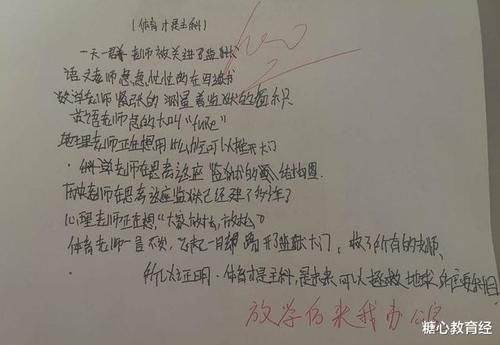 (体育才是主科)
一天一群老师被关进了监狱
语文老师急急忙忙的在写遗书
数学老师紧张的测量着监狱的面积
英语老师急的大叫"fuke"
地理老师正在想用什么能可以推开大门
老师在思考这座监狱的结构图
历史老师在思考这座监狱已经建了多少年了
心理老师正在想,"大家放松,放松"
体育老师一言不发,飞起一脚踢开了监狱大门,救了所有的老师,
所以证明·体育才是主科,是未来可以拯救地球的主要科目
放学后来我办公室
糖心教育经